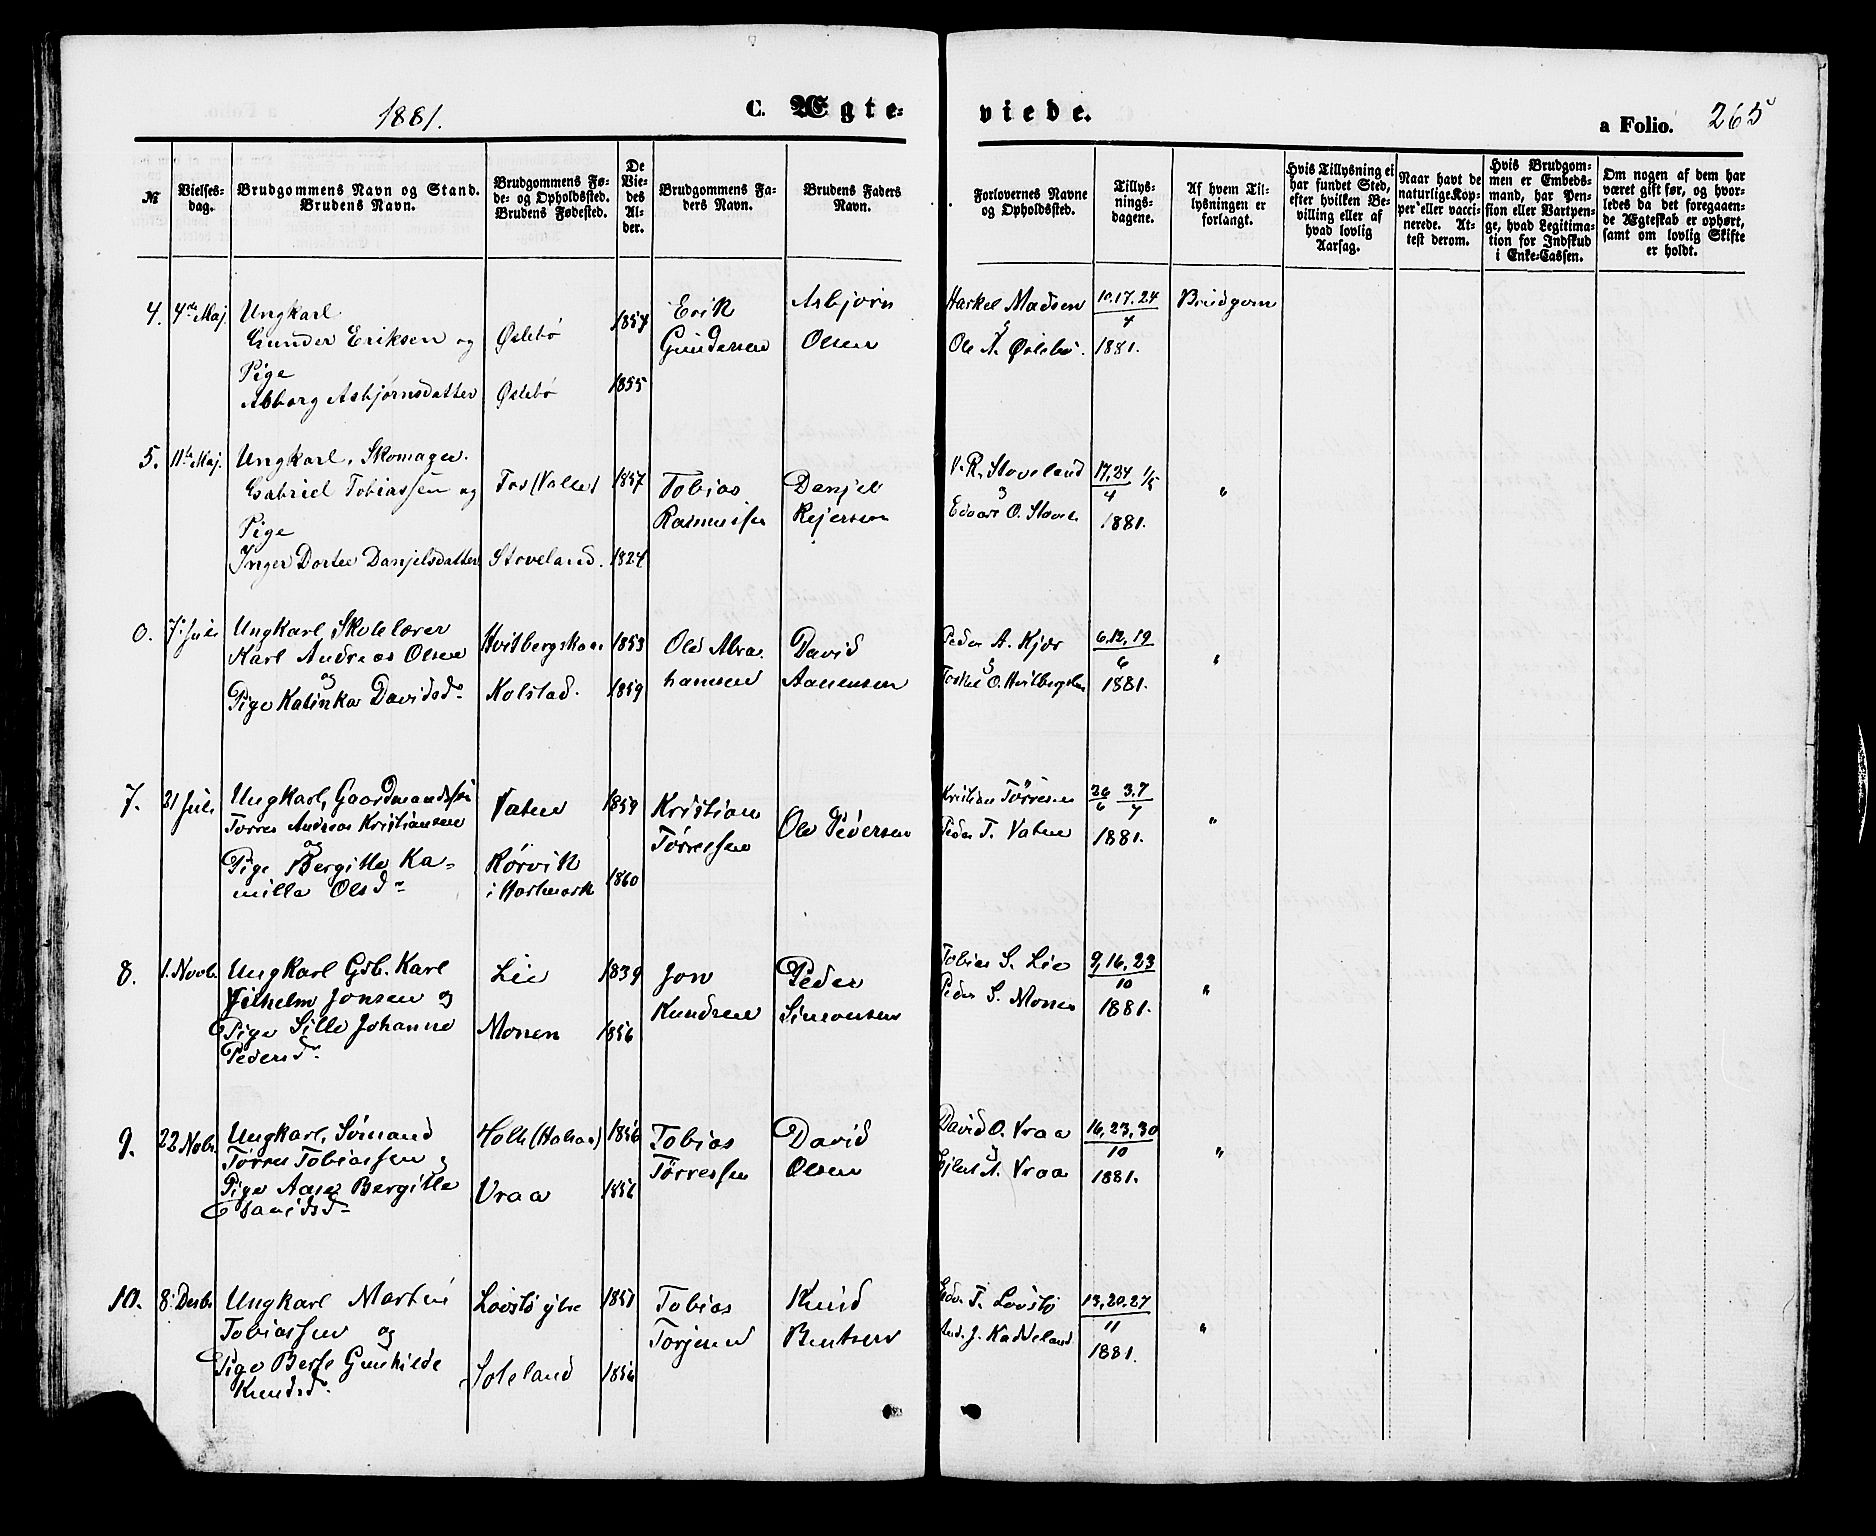 1881.
C. Ægte-
viede.
a Folio. 265
№
Vielses-
dag.
Brudgommens Navn og Stand.
Brudens Navn.
Brudgommens Fø-
de- og Opholdssted.
Brudens Fødested.
De
Vie-
des
Al-
der.
Brudgommens Fa-
ders Navn.
Brudens Faders
Navn.
Forlovernes Navne
og Opholdssted.
Tillys-
nings-
dagene.
Af hvem Til-
lysningen er
forlangt.
Hvis Tillysning ei
har fundet Sted,
efter hvilken Be-
villing eller af
hvad lovlig
Aarsag.
Naar havt de
naturlige Kop-
per eller vacci-
nerede. At-
test derom.
Hvis Brudgom-
men er Embeds-
mand, har Pen-
sion eller Vartpen-
ge, hvad Legitima-
tion for Indskud
i Enke-Cassen.
Om nogen af dem har
været gift før, og hvor-
ledes da det foregaaen-
de Ægteskab er ophørt,
samt om lovlig Skifte
er holdt.
4. 4de Maj.
Ungkarl
Gunder Eriksen og
Pige
Asborg Asbjørnsdatter
Øslebø
Øslebø
1857
1855
Erik
Gundersen
Asbjørn
Olsen
Haskel Madsen
Ole A. Øslebø.
10.17.24
4
1881.
Brudgom
5. 11te Maj.
Ungkarl, Skomager.
Gabriel Tobiassen og
Pige
Inger Dortee Danjelsdatter
Fos (Valle)
Stoveland.
1857
1824
Tobias
Rasmussen
Danjel
Rejersen
V. R. Stoveland
og
O. Stovel.
17,24 1/5
4
1881.
"
7. Juli
Ungkarl, Skolelærer
Karl Andreas Olsen
og
Pige Katinka Davidsd.
Kolstad.
1853
1859
Ole Abra
hamsen
David
Aanensen
Peder A. Kjær
og
6,12,19
6
1881.
"
7. 21 Juli
Ungkarl, Gaardmandssøn
Tørres Andreas Kristiansen
og
Pige Bergitte Ka-
milla Olsd.
Vatne
Rørvik
i Hartmark
1859
1860
Kristian
Tørresen
Ole Pedersen
Kristian Tørresen
Peder T. Vatne
26 3,7
6 7
1881.
"
8. 1. Novb.
Ungkarl Gdb. Karl
Vilhelm Jonsen og
Pige Sille Johanne
Pedersd.
Lie
Monen
1839
1856
Jon
Knudsen
Peder
Simonsen
Tobias S. Lie
Peder S. Monen
9,16,23
10
1881.
"
9. 22 Nobr.
Ungkarl, Sømand
Tørres Tobiassen og
Pige Aase Bergitte
Davidsd.
Vraa
1856
1856
Tobias
Tørressen
David
Olsen
David O. Vraa
og
Ejlert A. Vraa
16,23,30
10
1881.
"
10. 8. Desbr
Ungkarl Martin
Tobiassen og
Pige Berte Gunhilde
Knudsd.
Soteland
1851
1856
Tobias
Torjussen
Knud
Bentsen
T. Løvslø
And. J. Kaddeland
13,20,27
11
1881.
"